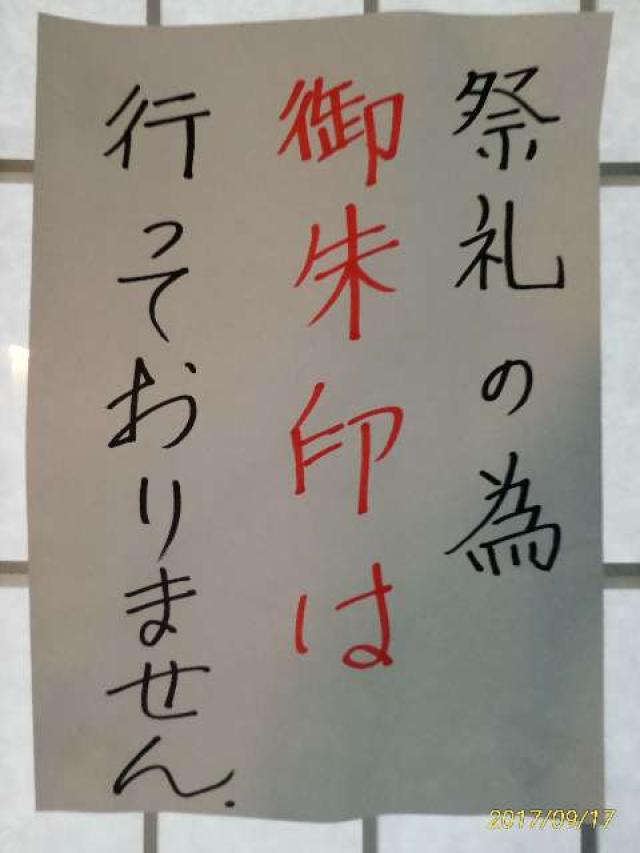 祭礼の為
御朱印は
行っておりません.
2017/09/17